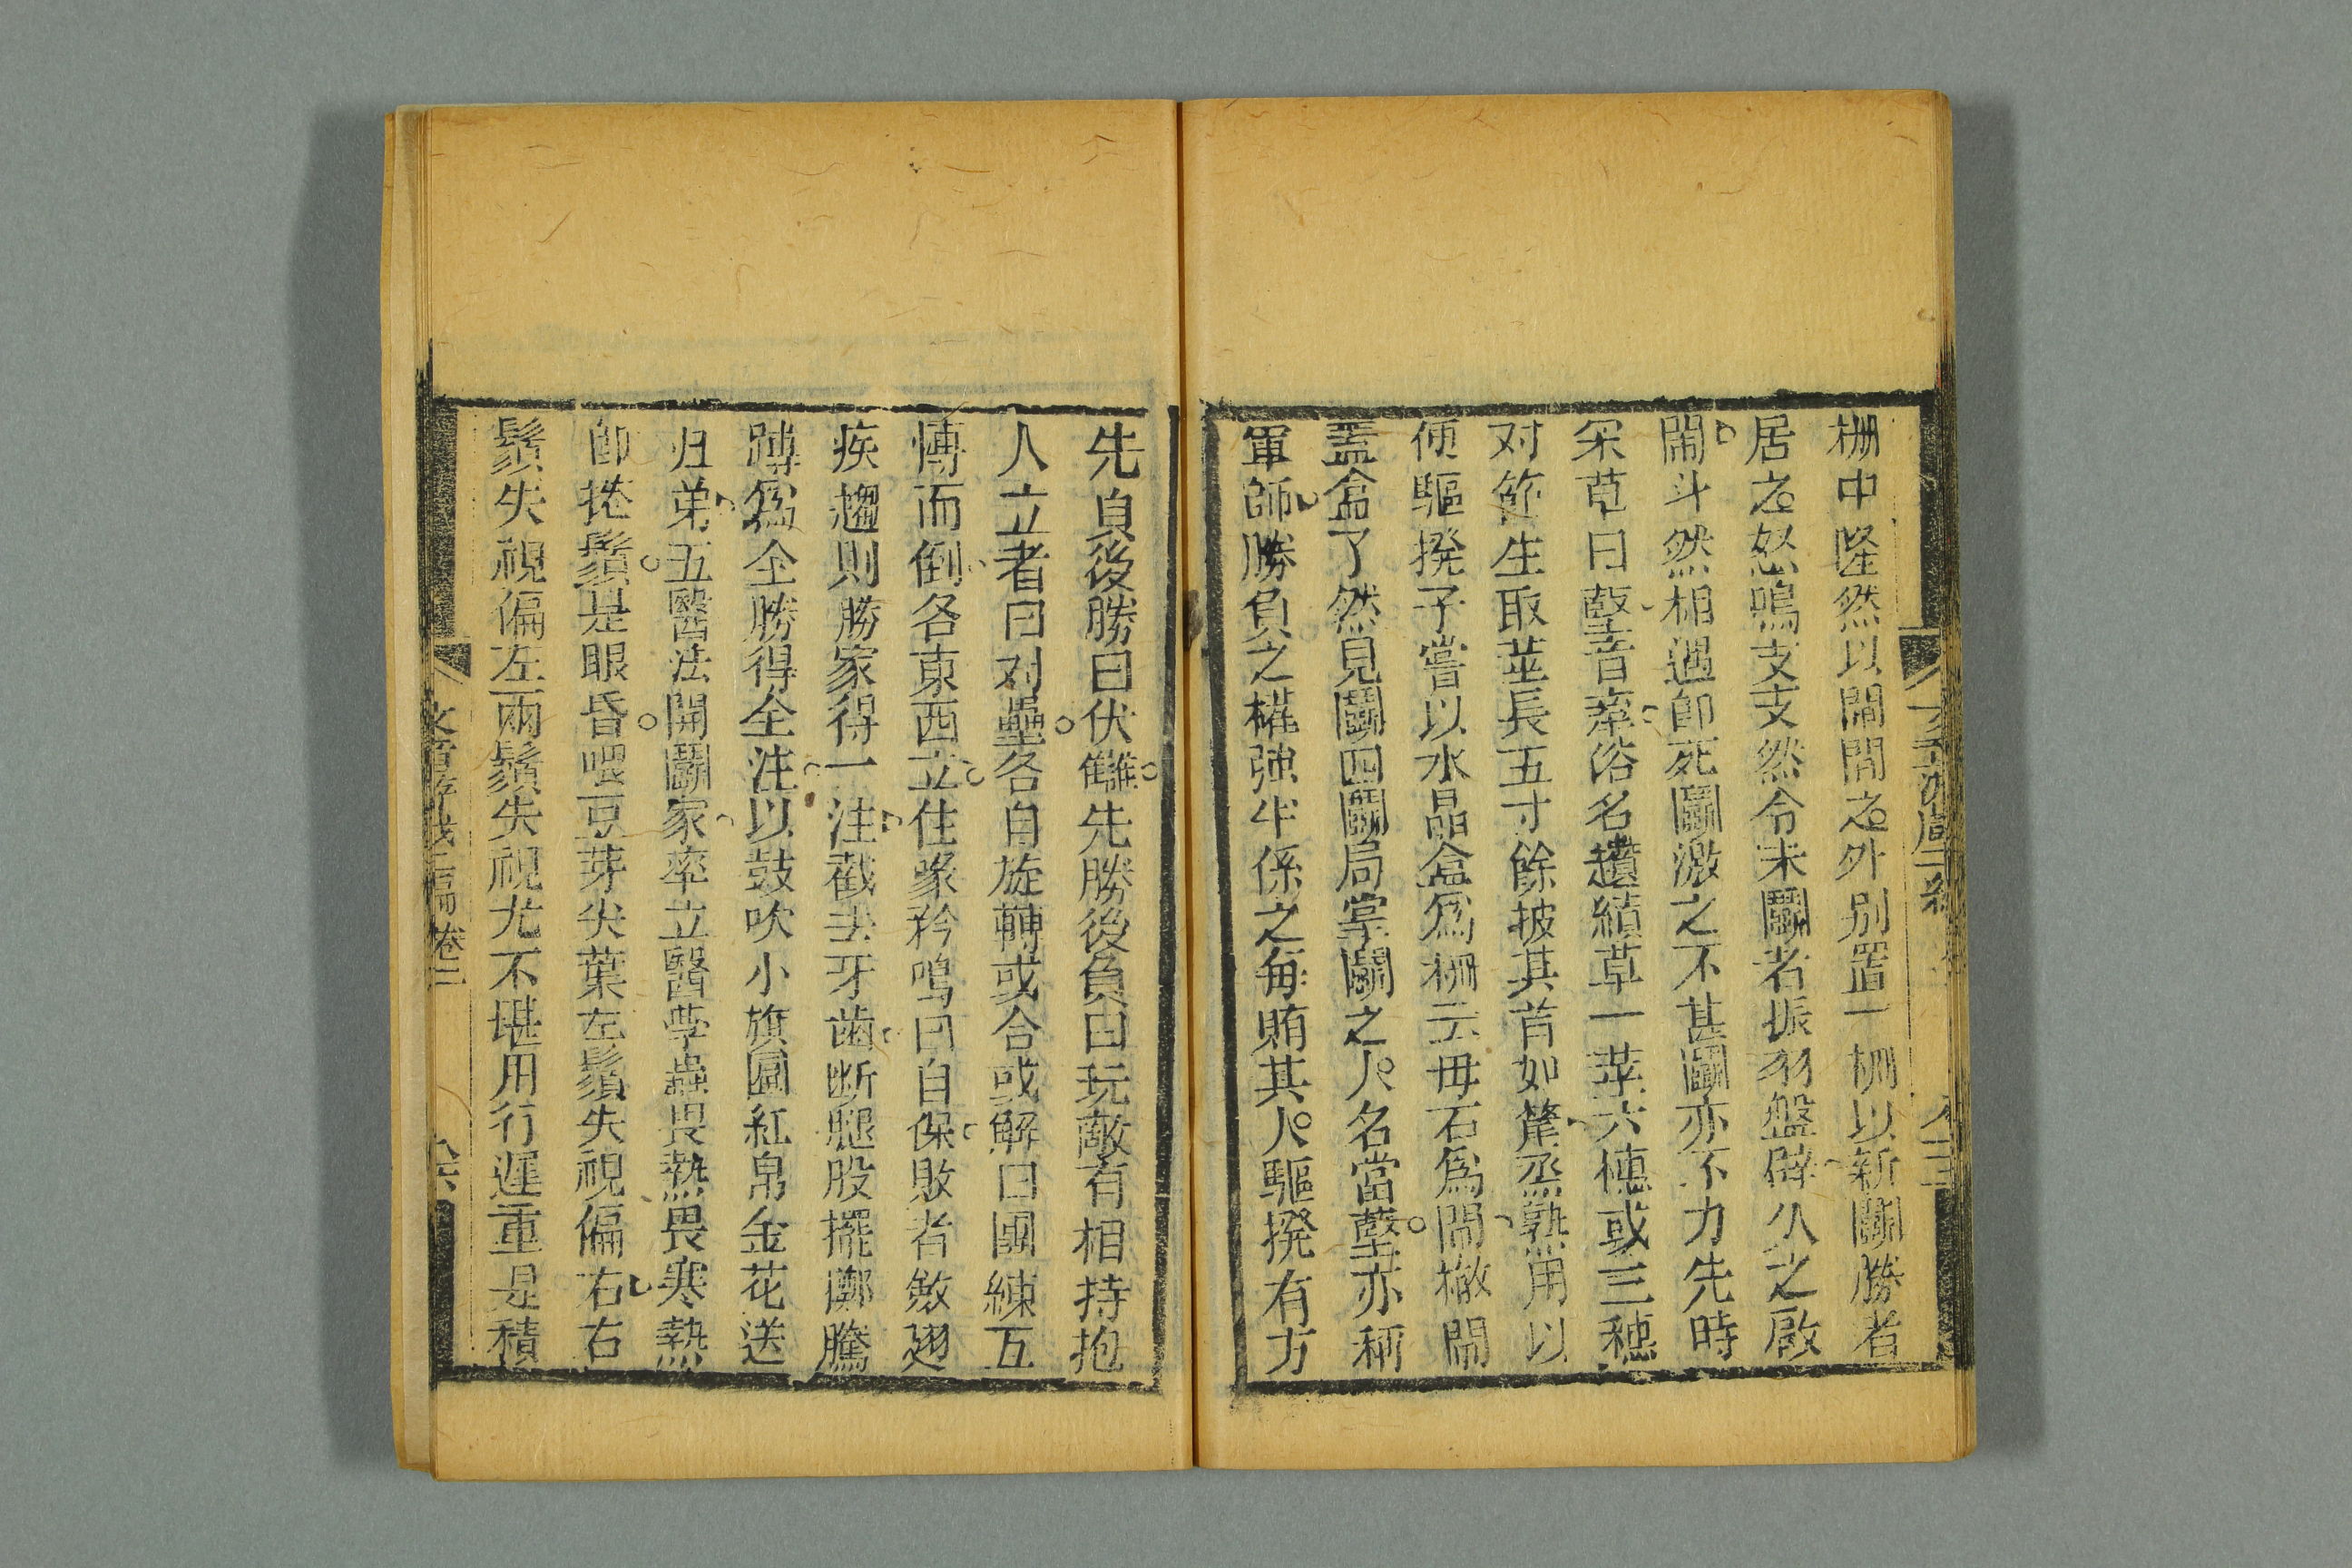 柵中隆然以閘間之外别置一柵以新鬬勝者
居之怒鳴支支然令未鬬者振羽盤僻久之啟
閘斗然相遇卽死鬬激之不甚鬬亦不力先時
采草曰㨌音牽俗名䞉績草一莖六穗或三穗
对節生取莖長五寸餘披其首如氂烝熟用以
便驅撥子嘗以水晶盒爲柵云母石爲閘撤閘
盖盒了然見鬬四鬬局掌鬬之人名當㨌亦稱
軍師勝負之權强半係之每賄其人驅撥有方
先負後勝曰伏讎先勝後負曰玩敵有相持抱
人立者曰对壘各自旋轉或合或解曰團練互
愽而倒各東西立住喙矜鳴曰自保敗者斂翅
疾趨則勝家得一注截去牙齒断腿股擺鄭騰
蹲爲全勝得全注以鼓吹小旗圓紅帛金花送
归弟五醫法開鬬家率立醫學蟲畏熱畏寒熱
卽捲鬚是眼昏喂豆芽尖葉左鬚失視偏右右
鬚失視偏左兩鬚失視尤不堪用行遲重是積
文章游戲二編卷二